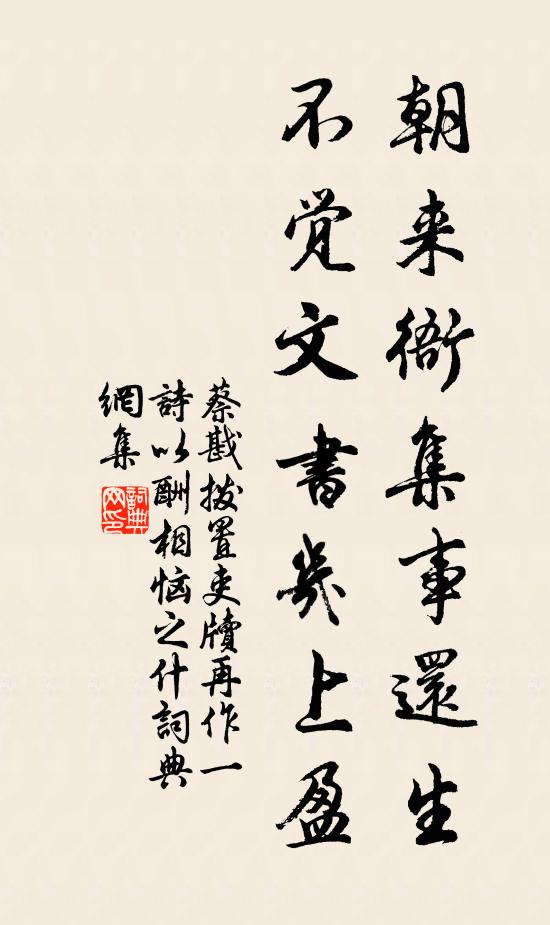 朝来衙集事還生
不覚文書几上盈
蔡戡拨置吏牘再作一
詩以酬相恼之什詞典
網集
詞典网印